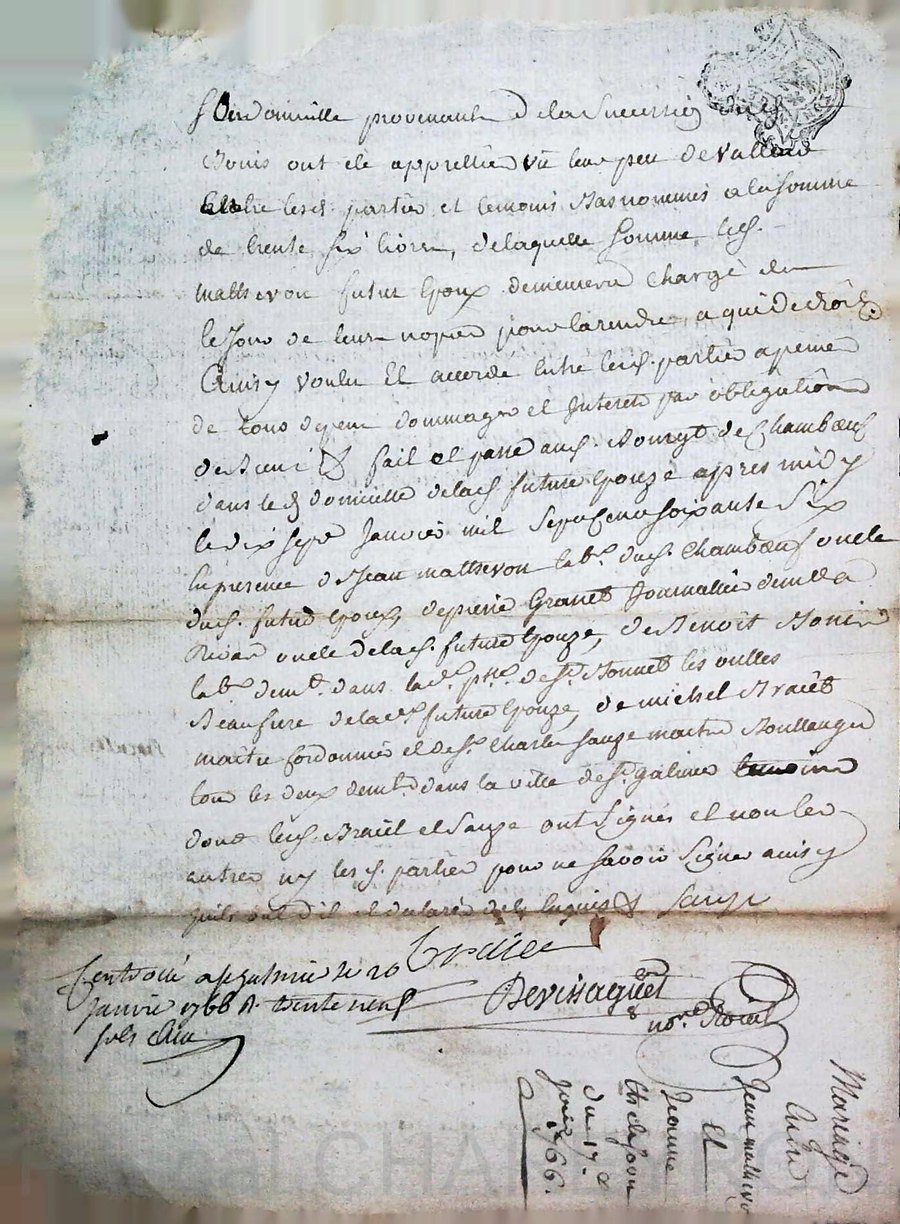 provenant de la Succession
ont été apprettiée vû leur peu de valleur
entre lesd. partie et temoins Bas nommés a la somme
de trente six livres, de laquelle somme led.
mathevon futur Epoux demeurera chargé des
le jour de leurs nopces pour la rendre a qui de droit.
Ainsy voulu et accordé entre lesd. partie a peine
de tous depens dommages et Interets par obligation
de Biens & fait et passé aud. Bourgt de Chambœuf
dans le d domicille de lad. future Epouze apres midy
le dix sept Janvier mil Sept Cent soixante Six
En presence de Jean mathevon lab.r dud. Chambœuf oncle
dud. futur Epoux, de pierre Granet Journallier dem.t a
oncle de lad. future Epouze, de Benoit
lab.r dem.t dans lad. p.sse de St. Bonnet les oulles
Beaufrere de lad. future Epouze, de michel Brait
maitre Cordonnier et de Sr. Charle Sauze maitre Boullanger
tous les deux dem.t dans la ville de St. galmier temoins
dont lesd. Brait et Sauze ont Signés et non les
autres ny lesd. partie pour ne Savoir Signer ainsy
quils ont dit et declarés de ce Enquis & Sauze
Controllé a St galmier le 20
Janvier 1766 R. trente neuf
sols
Devissaguet
no.re Royal
Mariage
Entre
Jean mathevon
Et
Jeanne
du 17.e
Janvr.
1766.
CHAMBRON